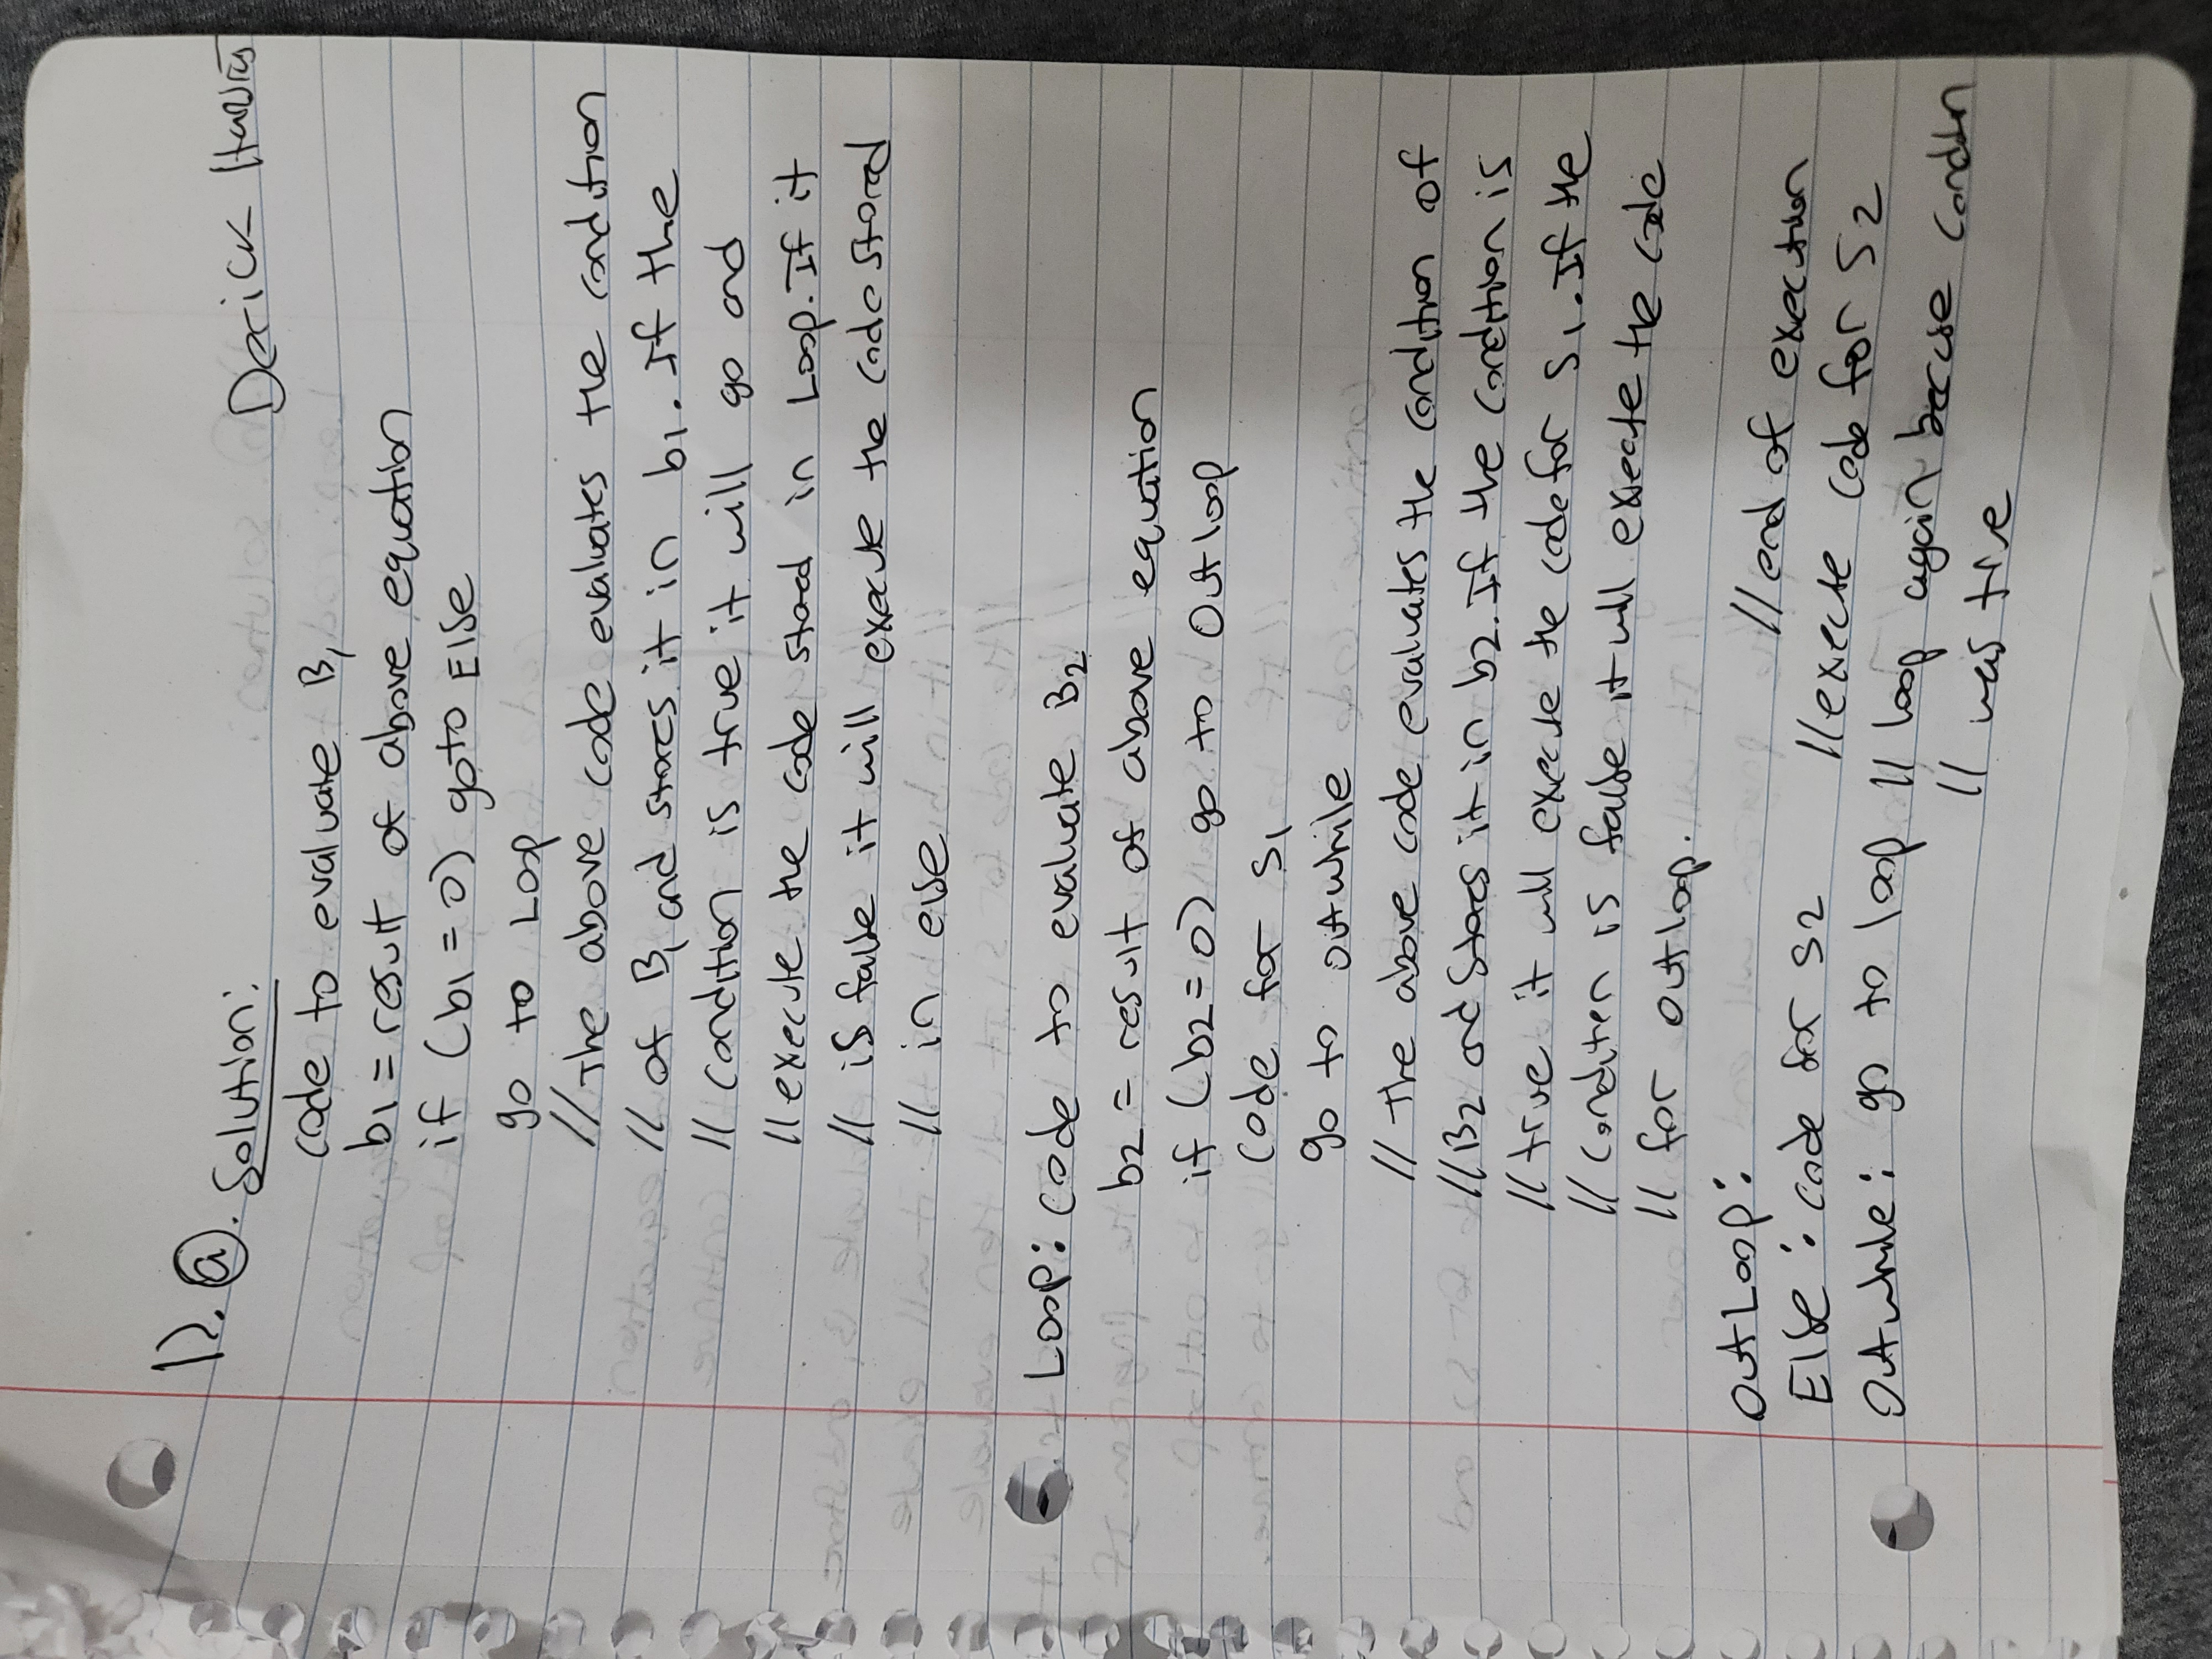 12. a. Solution:
Derick Harris
code to evaluate B1
b1 = result of above equation
if (b1 = 0) goto Else
go to Loop
// The above code evaluates the condition
// of B1 and stores it in b1. If the
// condition is true it will go and
// execute the code stored in Loop. If it
// is false it will execute the code stored
// in else
Loop: code to evaluate B2
b2 = result of above equation
if (b2 = 0) go to Outloop
code for S1
go to outwhile
// The above code evaluates the condition of
// B2 and stores it in b2. If the condition is
// true it will execute the code for S1. If the
// condition is false it will execute the code
// for outloop.
OutLoop: // end of execution
Else: code for S2 // execute code for S2
Outwhile: go to loop // loop again because condition
// was true